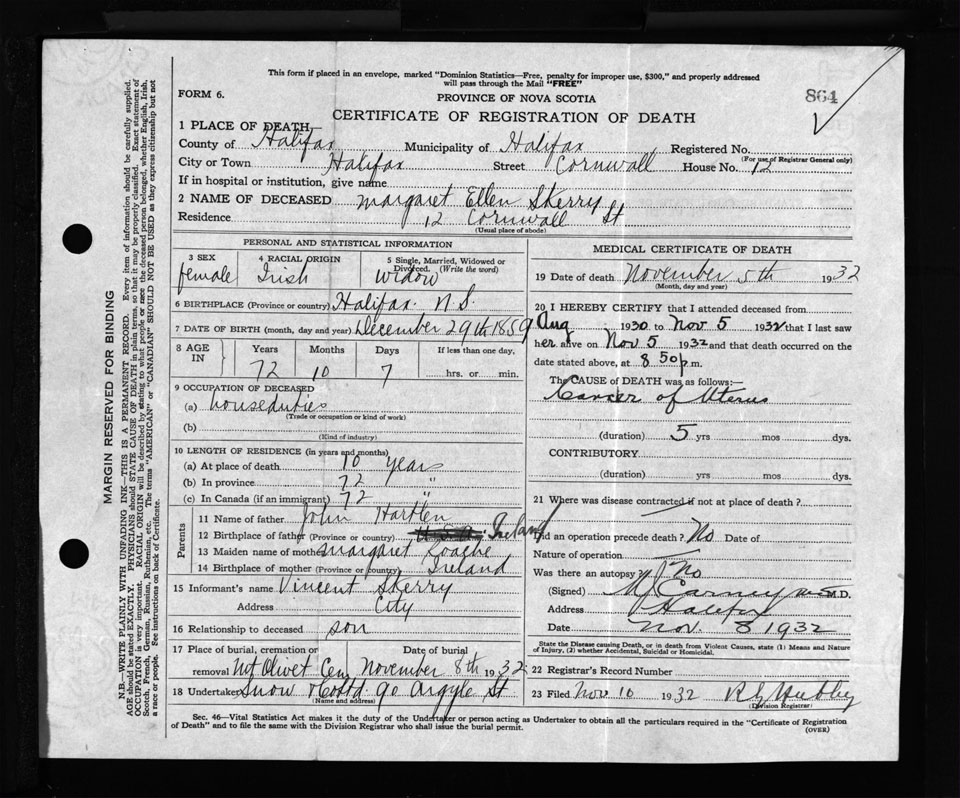 This form if placed in an envelope, marked "Dominion Statistics—Free, penalty for improper use, $300," and properly addressed
will pass through the Mail "FREE"
FORM 6.
PROVINCE OF NOVA SCOTIA
864
CERTIFICATE OF REGISTRATION OF DEATH
1 PLACE OF DEATH
County of Halifax Municipality of Halifax Registered No.
(For use of Registrar General only)
City or Town Halifax Street Cornwall House No. 12
If in hospital or institution, give name
2 NAME OF DECEASED Margaret Ellen Skerry
Residence 12 Cornwall St
(Usual place of abode)
PERSONAL AND STATISTICAL INFORMATION
3 SEX 4 RACIAL ORIGIN 5 Single, Married, Widowed or Divorced. (Write the word)
female Irish widow
6 BIRTHPLACE (Province or country) Halifax. N.S.
7 DATE OF BIRTH (month, day and year) December 29th 1859
8 AGE IN Years Months Days If less than one day,
72 10 7 hrs. or min.
9 OCCUPATION OF DECEASED
(a) houseduties
(Trade or occupation or kind of work)
(b)
(Kind of industry)
10 LENGTH OF RESIDENCE (in years and months)
(a) At place of death 10 years
(b) In province 72 "
(c) In Canada (if an immigrant) 72 "
Parents
11 Name of father John Hartlen
12 Birthplace of father (Province or country) U.S.A. Ireland
13 Maiden name of mother Margaret Roache
14 Birthplace of mother (Province or country) Ireland
15 Informant's name Vincent Skerry
Address City
16 Relationship to deceased son
17 Place of burial, cremation or removal Mt Olivet Cem Date of burial November 8th 1932
18 Undertaker Snow & Co Ltd. 90 Argyle St
(Name and address)
MEDICAL CERTIFICATE OF DEATH
19 Date of death November 5th 1932
(Month, day and year)
20 I HEREBY CERTIFY that I attended deceased from
Aug 1930 to Nov 5 1932 that I last saw
her alive on Nov 5 1932 and that death occurred on the
date stated above, at 8 50 p m.
The CAUSE of DEATH was as follows:—
Cancer of Uterus
(duration) 5 yrs mos dys.
CONTRIBUTORY
(duration) yrs mos dys.
21 Where was disease contracted if not at place of death?
Did an operation precede death? No Date of
Nature of operation
Was there an autopsy? No
(Signed) Carney M.D.
Address Halifax
Date Nov. 8 1932
State the Disease causing Death, or in death from Violent Causes, state (1) Means and Nature
of Injury, (2) whether Accidental, Suicidal or Homicidal.
22 Registrar's Record Number
23 Filed Nov 10 1932
(Division Registrar)
Sec. 46—Vital Statistics Act makes it the duty of the Undertaker or person acting as Undertaker to obtain all the particulars required in the "Certificate of Registration
of Death" and to file the same with the Division Registrar who shall issue the burial permit.
(OVER)
MARGIN RESERVED FOR BINDING
N.B.—WRITE PLAINLY WITH UNFADING INK—THIS IS A PERMANENT RECORD. Every item of information should be carefully supplied.
AGE should be stated EXACTLY. PHYSICIANS should STATE CAUSE OF DEATH in plain terms, so that it may be properly classified. Exact statement of
OCCUPATION is very important. RACIAL ORIGIN will be described by stating to what people or race the deceased person belonged, whether English, Irish,
Scotch, French, German, Russian, Ruthenian, etc. The terms "AMERICAN" or "CANADIAN" SHOULD NOT BE USED as they express citizenship but not
a race or people. See instructions on back of Certificate.